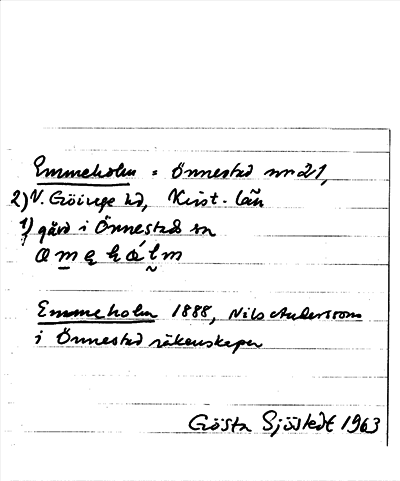 Emmeholm = Önnestad nr 21,
2) N. Göinge hd, Krist. län
1) gård i Önnestads sn

Emmeholm 1888, Nils Andersson
i Önnestad räkenskaper
Gösta Sjöstedt 1963